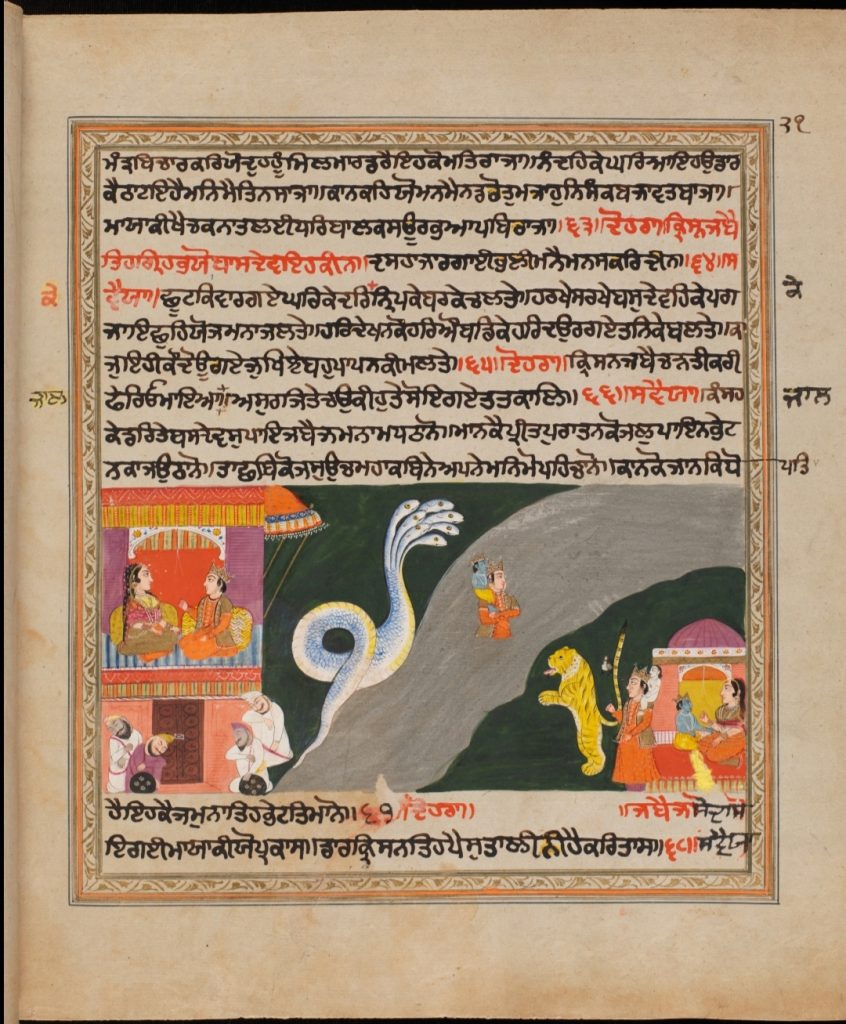 ਮੰਤ੍ਰਬਿਚਾਰਕਰਿਯੋਦੁਹਹੂੰਮਿਲਮਾਰਡਰੈਇਹਕੋਮਤਿਰਾਜਾ॥ਨੰਦਹਿਕੇਘਰਿਆਇਹਉਡਾਰ
ਕੈਠਾਟਇਹੈਮਨਿਮੈਤਿਨਸਾਜਾ॥ਕਾਨਕਹਿਯੋਮਨਮੈਨਡਰੋਤੁਮਜਾਹੁਨਿਸੰਕਬਜਾਵਤਬਾਜਾ॥
ਮਾਯਾਕੀਖੈਚਕਨਾਤਲਈਧਰਿਬਾਲਕਸਊਰਭਆਪਬਿਰਾਜਾ॥੬੩॥ਦੋਹਰਾ॥ਕ੍ਰਿਸ੍ਨਜਬੈ
ਤਿਹਗ੍ਰਿਹਭਯੋਬਾਸਦੇਵਇਹਕੀਨ॥ਦਸਹਜਾਰਗਾਈਭਲੀਮਨੈਮਨਸਕਰਿਦੀਨ॥੬੪॥ਸ
ਵੈਯਾ॥ਛੂਟਕਿਵਾਰਗਏਘਰਿਕੇਦਰਿਨ੍ਰਿਪਕੇਬਰਕੇਚਲਤੇ॥ਹਰਖੇਸਰਖੇਬਸੁਦੇਵਹਿਕੇਪਗ
ਜਾਇਛੁਹਿਯੋਜਮਨਾਜਲਤੇ॥ਹਰਿਦੇਖਨਕੋਹਰਿਔਬਢਿਕੇਹਰਿਦਉਰਗਏਤਨਿਕੇਬਲਤੇ॥ਕਾ
ਜੁਇਹੀਕੌਦੋਊਗਏਜੁਖਿਝੇਬਹੁਪਾਪਨਕੀਮਲਤੇ॥੬੫॥ਦੋਹਰਾ॥ਕ੍ਰਿਸਨਜਬੈਚੜਤੀਕਰੀ
ਫੇਰਿਓਮਾਇਆਅਸੁਰਜਿਤੇਚਉਕੀਹੁਤੇਸੋਇਗਏਤਤਕਾਲਿ॥੬੬॥ਸਵੈਯਾ॥ਕੰਸਹ
ਕੇਡਰਿਤੇਬਸਦੇਵਸੁਪਾਇਜਬੈਜਮਨਾਮਧਠਾਨੋ॥ਮਾਨਕੈਪ੍ਰੀਤਪੁਰਾਤਨਕੋਜਲੁਪਾਇਨਭੇਟ
ਨਕਾਜਉਠਾਨੋ॥ਤਾਛਬਿਕੋਜਸੁਊਚਮਹਾਕਬਿਨੇਅਪਨੇਮਨਿਮੋਪਹਿਚਾਨੋ॥ਕਾਨਕੋਜਾਨਕਿਧੋ
ਹੈਇਹਕੈਜਮੁਨਾਤਿਹਭੇਟਤਿਮਾਨੋ॥੬੭॥ਦੋਹਰਾ॥ ॥ਜਬੈਜਸੋਦਾਸੋ
ਇਗਈਮਾਯਾਕੀਯੋਪ੍ਰਕਾਸ॥ਡਾਰਕ੍ਰਿਸਨਤਿਹਪੈਸੁਤਾਲੀਨੀਹੈਕਰਿਤਾਸ॥੬੮॥ਸਵੈਯਾ
੩੧
ਕੇ
ਕੇ
ਜਾਲ
ਜਾਲ
ਪਤਿ